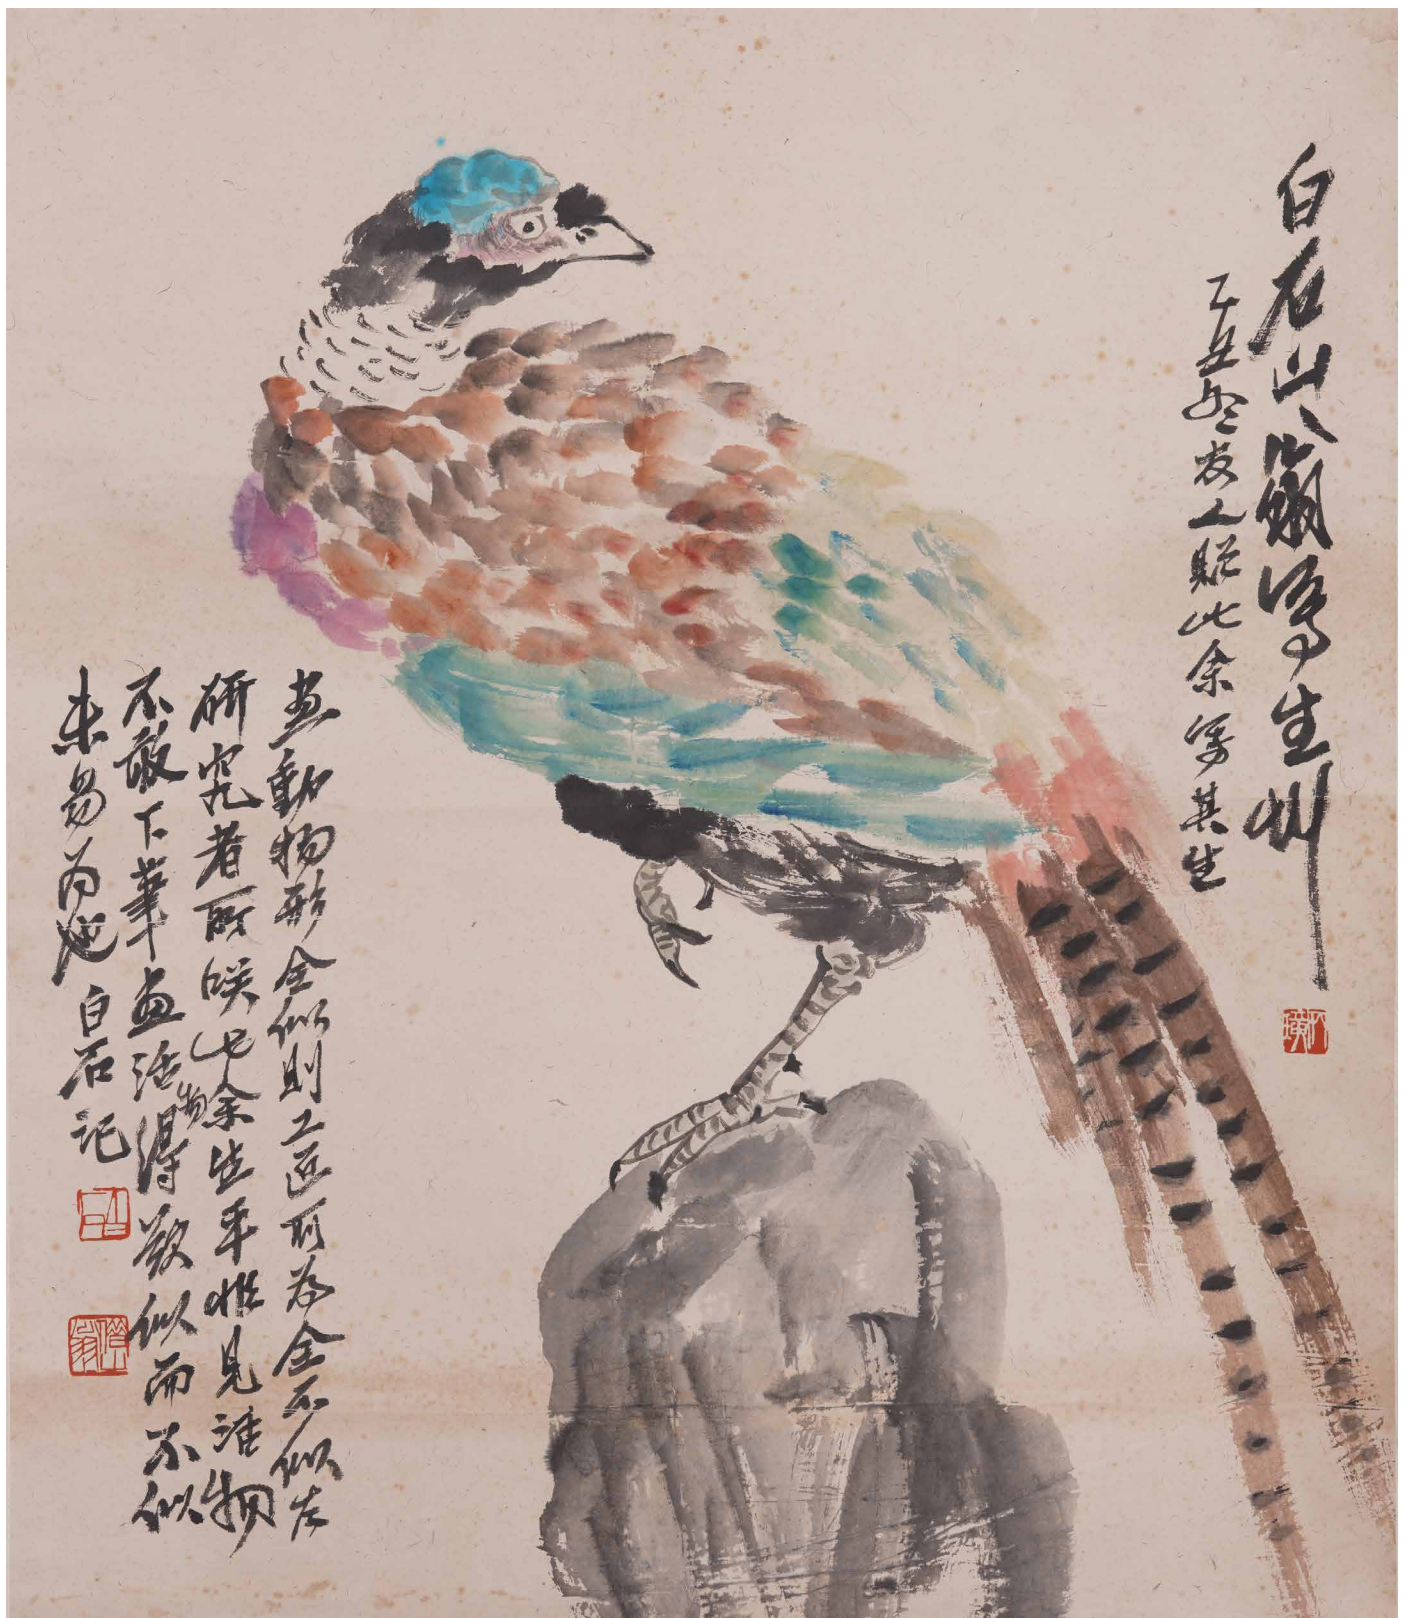 白石山翁写生冊
乙丑冬友人贈此余写其生
画動物形全似則工匠所為全不似左
研究者所咲也余生平惟見活物
不敢下筆画活物得欲似而不似
未易為也白石記
白石